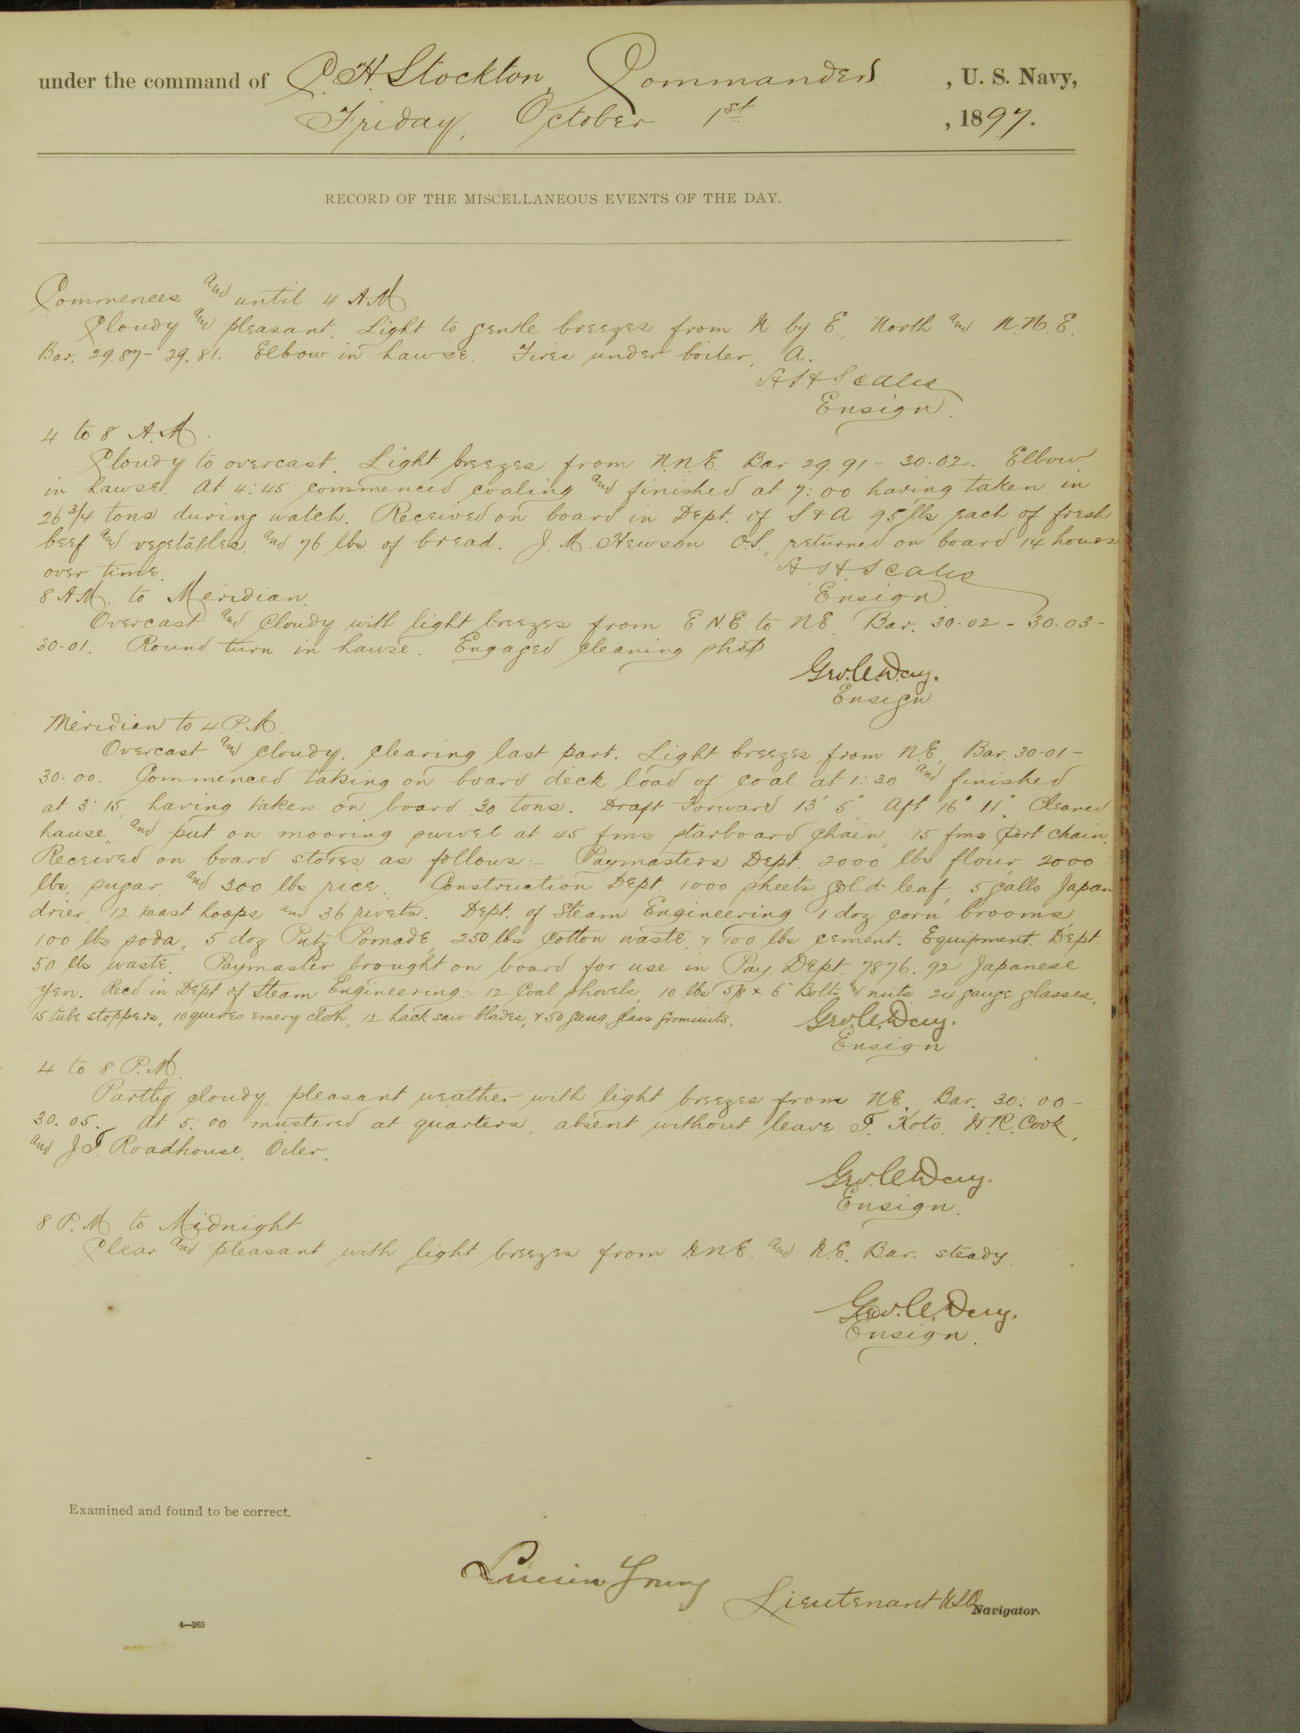 under the command of C. H. Stockton, Commander, U. S. Navy,
Friday, October 1st, 1897.
RECORD OF THE MISCELLANEOUS EVENTS OF THE DAY.
Commences and until 4 A.M.
Cloudy and pleasant. Light to gentle breezes from N by E., North and N.N.E.
Bar. 29.87 - 29.81. Elbow in hawse. Fires under boiler, A.
A H Scales
Ensign.
4 to 8 A.M.
Cloudy to overcast. Light breezes from N.N.E. Bar 29.91 - 30.02. Elbow
in hawse. At 4:45 commenced coaling and finished at 7:00 having taken in
26 3/4 tons during watch. Received on board in Dept. of S & A 95 lbs each of fresh
beef and vegetables, and 76 lbs of bread. J. M. Newson O.S., returned on board 14 hours
over time.
A H Scales
Ensign
8 A.M. to Meridian.
Overcast and cloudy with light breezes from E N E to N E. Bar. 30.02 - 30.03 -
30.01. Round turn in hawse. Engaged cleaning ship
Geo. C. Day.
Ensign
Meridian to 4 P.M.
Overcast and cloudy, clearing last part. Light breezes from N.E. Bar. 30.01 -
30.00. Commenced taking on board deck load of coal at 1:30 and finished
at 3:15, having taken on board 30 tons. Draft Forward 13' 5" Aft 16' 11". Cleared
hause, and put on mooring swivel at 45 fms starboard chain, 15 fms port chain.
Received on board stores as follows:- Paymasters Dept. 2000 lbs flour, 2000
lbs. sugar, and 300 lbs rice. Construction Dept. 1000 sheets gold leaf, 5 galls Japan
drier, 12 mast hoops and 36 rivets. Dept. of Steam Engineering 1 doz corn brooms
100 lbs soda, 5 doz Putz Pomade, 250 lbs cotton waste, & 100 lbs cement. Equipment. Dept.
50 lbs waste. Paymaster brought on board for use in Pay Dept. 7876.92 Japanese
Yen. Recd in Dept of Steam Engineering:- 12 Coal shovels, 10 lbs 5/8 x 6 Bolts & nuts, 24 gauge glasses,
15 tube stoppers, 10 quires emery cloth, 12 hack saw blades, & 50 gaug glass gromints.
Geo. C. Day.
Ensign
4 to 8 P.M.
Partly cloudy, pleasant weather with light breezes from N E. Bar. 30.00 -
30.05. At 5:00 mustered at quarters, absent without leave T. Koto, W.R. Cook,
and J. F. Roadhouse, Oiler.
Geo. C. Day.
Ensign.
8 P.M. to Midnight
Clear and pleasant with light breezes from N N E. and N.E. Bar. steady.
Geo. C. Day.
Ensign.
Examined and found to be correct.
Lucien Young
Lieutenant USN Navigator.
4—265